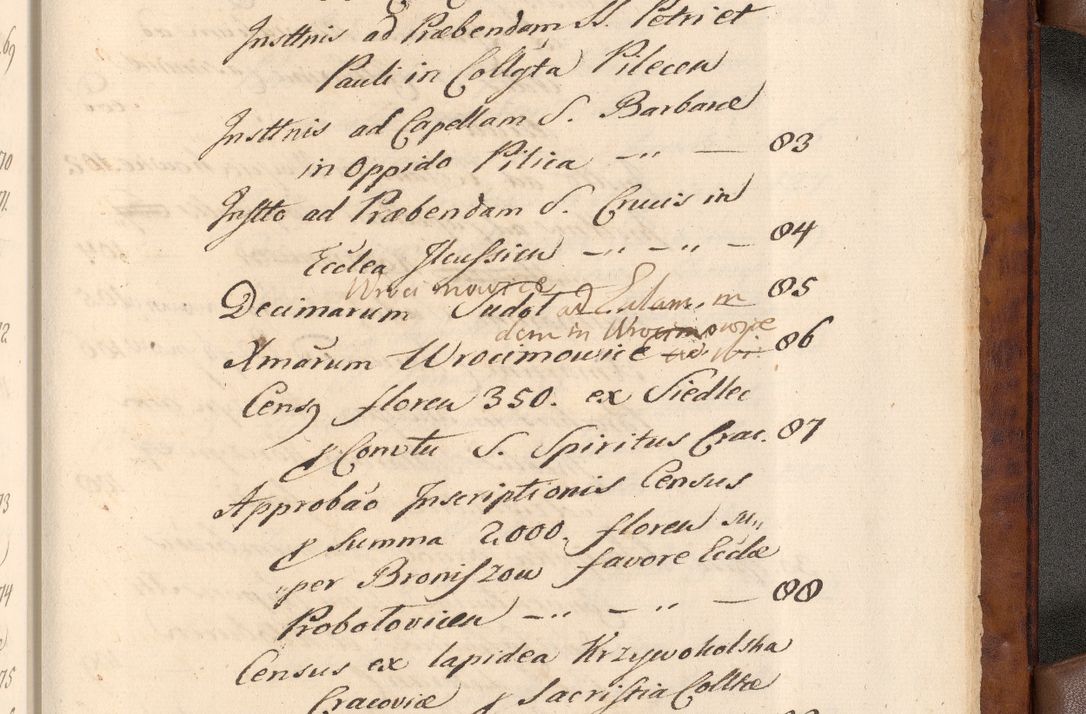 Insttnis ad Præbendam SS. Petri et
Pauli in Collgta Pilecen
Insttnis ad Capellam S. Barbaræ
in Oppido Pilica 83
Instto ad Præbendam S. Crucis in
Ecclea Ilcussien 84
Decimarum Sudol ad Eulam. in 85
dem in Wrocimowice
Amarum Wrocimowice 86
Censg floren 350. ex Siedlec
p Convtu S. Spiritus Crac. 87
Approbao Inscriptionis Census
p summa 2000. floren su,,
per Broniszow favore Eccleæ
Probotovicen 88
Census ex lapidea Krzywokolska
Cracoviæ p Sacristia Colltæ
69
70
71.
72.
73
74
75